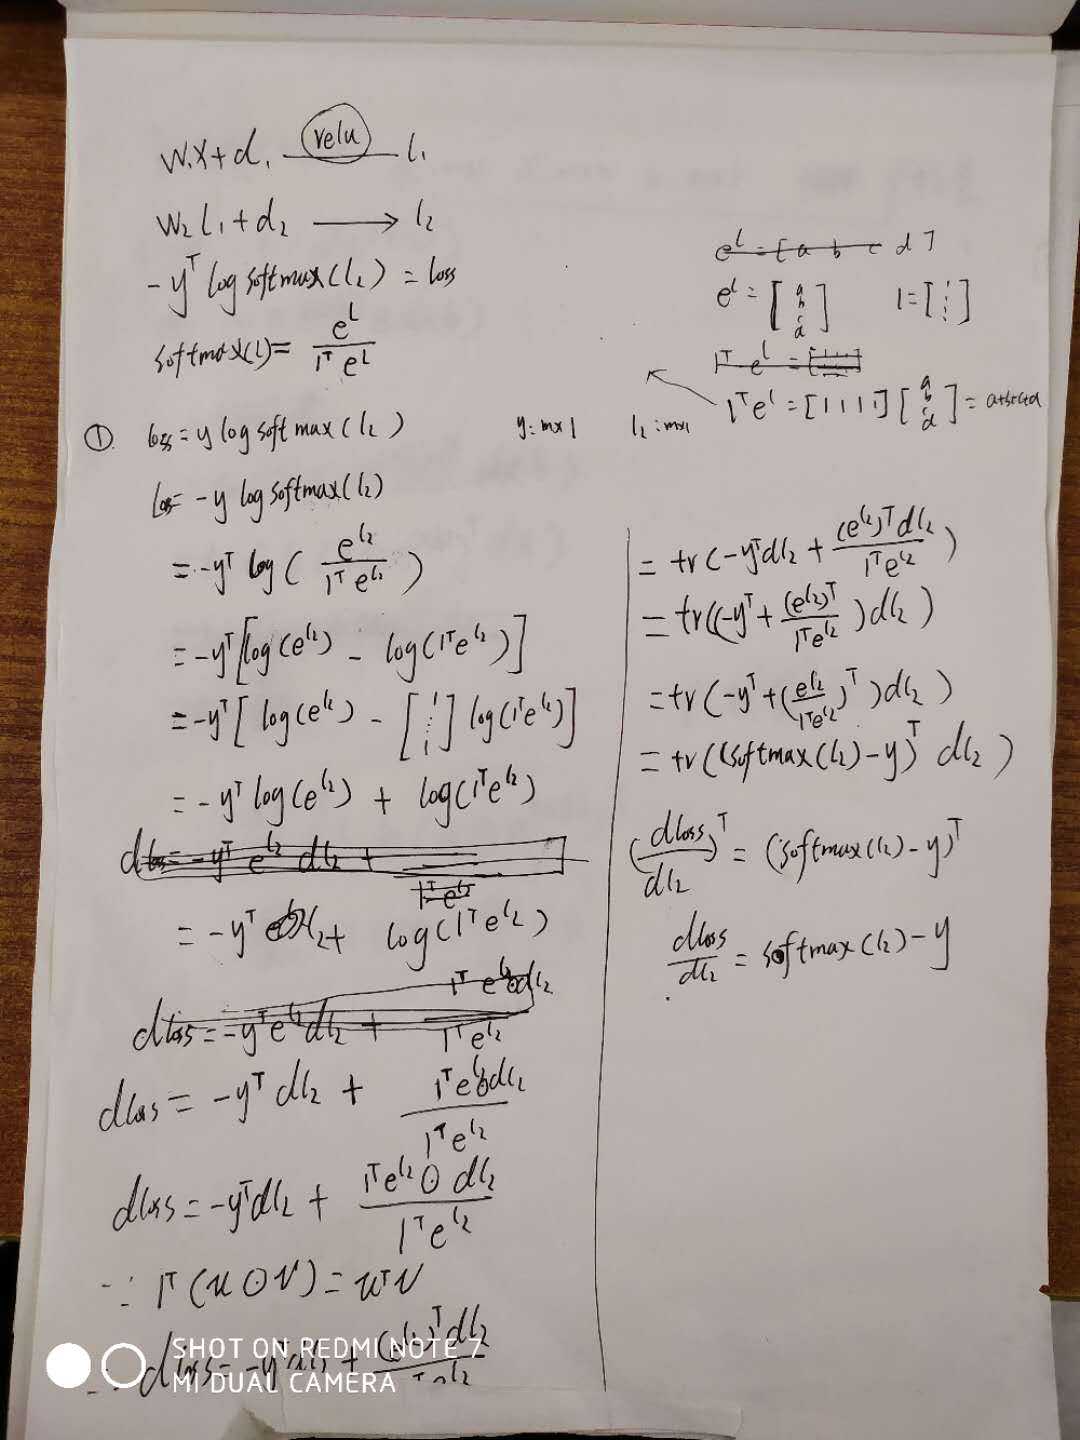 W₁X+d₁ relu l₁
W₂l₁+d₂ ⟶ l₂
-yᵀ log softmax(l₂) = loss
softmax(l)= e^l / 1ᵀ e^l
e^l = [a b c d]
e^l = [a b c d] 1=[1 ⋮ 1]
1ᵀ e^l =
1ᵀe^l = [1 1 1 1] [a b c d] = a+b+c+d
① loss = y log softmax(l₂) y: m×1 l₂: m×1
loss= -y log softmax(l₂)
= -yᵀ log( e^l₂ / 1ᵀ e^l₂ )
= -yᵀ[log(e^l₂) - log(1ᵀe^l₂)]
= -yᵀ[log(e^l₂) - [1 ⋮ 1] log(1ᵀe^l₂)]
= -yᵀ log(e^l₂) + log(1ᵀe^l₂)
dloss= -yᵀ e^l₂ dl₂ + / 1ᵀ e^l₂
= -yᵀ l₂ + log(1ᵀe^l₂)
dloss = -yᵀe^l₂ dl₂ + 1ᵀ e^l₂⊙dl₂ / 1ᵀe^l₂
dloss = -yᵀ dl₂ + 1ᵀe^l₂⊙dl₂ / 1ᵀe^l₂
dloss = -yᵀdl₂ + 1ᵀe^l₂ ⊙ dl₂ / 1ᵀe^l₂
∵ 1ᵀ(u⊙v) = uᵀv
∴ dloss = -yᵀdl₂ + (e^l₂)ᵀdl₂ / 1ᵀe^l₂
= tr(-yᵀdl₂ + (e^l₂)ᵀdl₂ / 1ᵀe^l₂)
= tr((-yᵀ + (e^l₂)ᵀ / 1ᵀe^l₂)dl₂)
= tr(-yᵀ + (e^l₂ / 1ᵀe^l₂)ᵀ)dl₂)
= tr((softmax(l₂)-y)ᵀ dl₂)
(dloss / dl₂)ᵀ = (softmax(l₂)-y)ᵀ
dloss / dl₂ = softmax(l₂)-y
SHOT ON REDMI NOTE 7
MI DUAL CAMERA